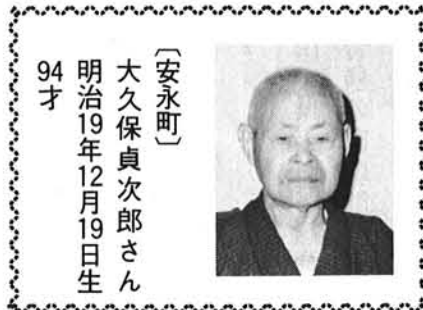 〔安永町〕
大久保貞次郎さん
明治19年12月19日生
94才